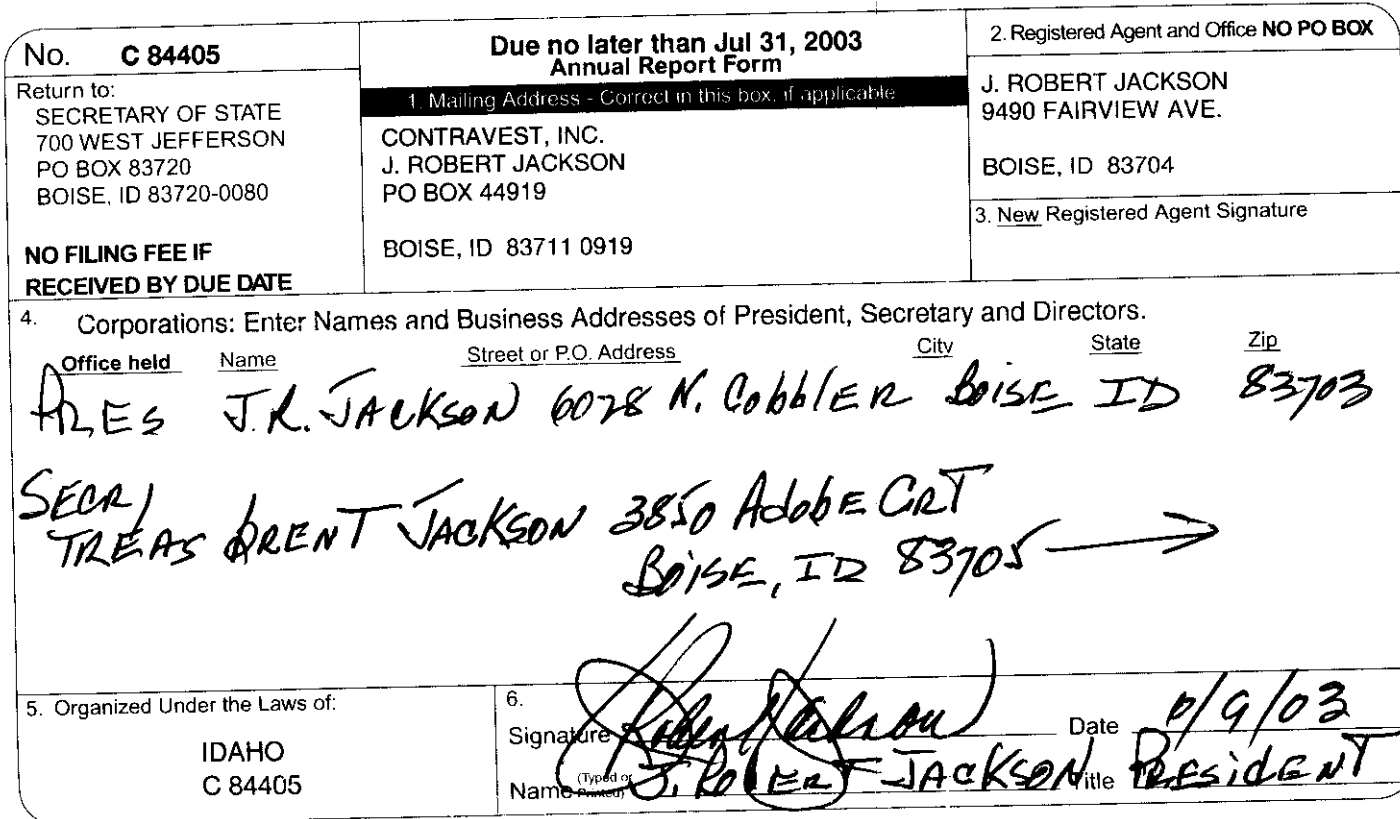 No. C 84405
Return to:
SECRETARY OF STATE
700 WEST JEFFERSON
PO BOX 83720
BOISE, ID 83720-0080
NO FILING FEE IF
RECEIVED BY DUE DATE
Due no later than Jul 31, 2003
Annual Report Form
1. Mailing Address - Correct in this box, if applicable
CONTRAVEST, INC.
J. ROBERT JACKSON
PO BOX 44919
BOISE, ID 83711 0919
2. Registered Agent and Office NO PO BOX
J. ROBERT JACKSON
9490 FAIRVIEW AVE.
BOISE, ID 83704
3. New Registered Agent Signature
4. Corporations: Enter Names and Business Addresses of President, Secretary and Directors.
Office held Name Street or P.O. Address City State Zip
PRES J.R. JACKSON 6028 N. CobblER BoiSE ID 83703
SECR/
TREAS BRENT JACKSON 3850 AdobE CRT
BoiSE, ID 83705
5. Organized Under the Laws of:
IDAHO
C 84405
6.
Signature Robert Jackson Date /9/03
Name (Typed or Printed) J. RobERT JACKSON Title PRESidENT